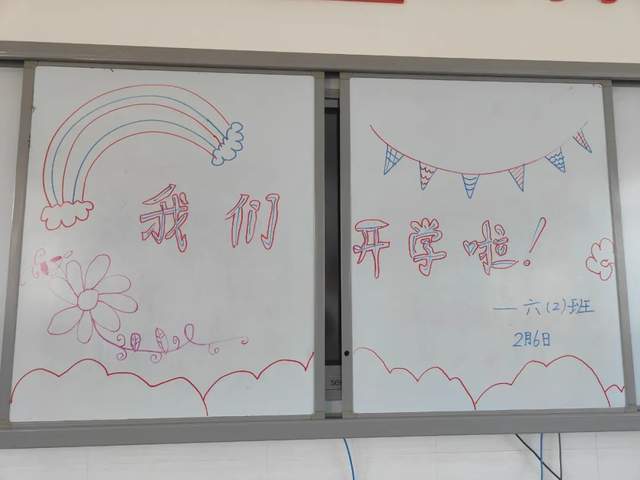 我们开学啦！
—六(2)班
2月6日